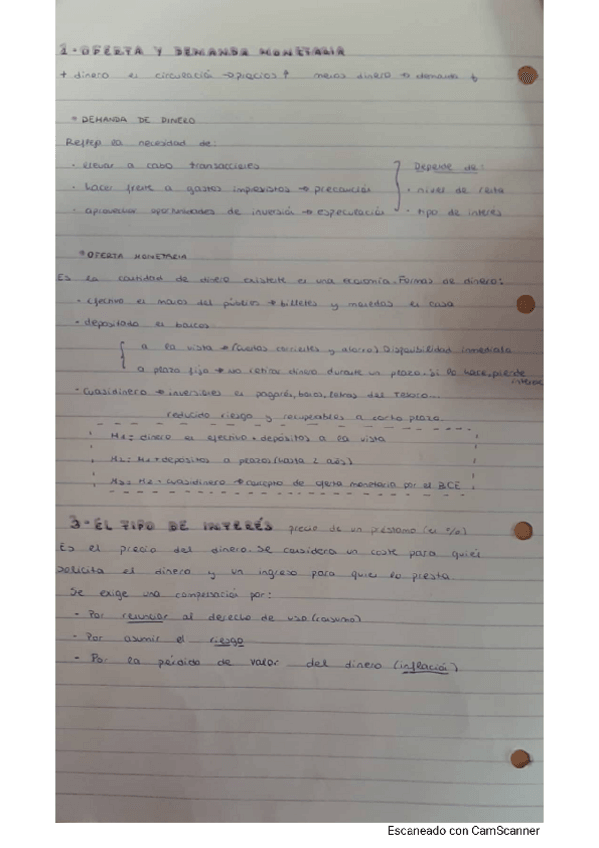 1- OFERTA Y DEMANDA MONETARIA
+ dinero en circulación → precios ↑ menos dinero → demanda ↓
* DEMANDA DE DINERO
Refleja la necesidad de:
· llevar a cabo transacciones
Depende de:
· hacer frente a gastos imprevistos → precaución
· nivel de renta
· aprovechar oportunidades de inversión → especulación
· tipo de interés
* OFERTA MONETARIA
Es la cantidad de dinero existente en una economía. Formas de dinero:
· efectivo en manos del público → billetes y monedas en casa
· depositado en bancos
a la vista → (cuentas corrientes y ahorro) Disponibilidad inmediata
a plazo fijo → no retirar dinero durante un plazo. Si lo hace, pierde
interés
· Cuasidinero → inversiones en pagarés, bonos, letras del Tesoro...
reducido riesgo y recuperables a corto plazo
M1 = dinero en efectivo + depósitos a la vista
M2 = M1 + depósitos a plazos (hasta 2 años)
M3 = M2 + cuasidinero → concepto de oferta monetaria por el BCE
3- EL TIPO DE INTERÉS precio de un préstamo (en %)
Es el precio del dinero. Se considera un coste para quien
solicita el dinero y un ingreso para quien lo presta
Se exige una compensación por:
- Por renunciar al derecho de uso (consumo)
- Por asumir el riesgo
- Por la pérdida de valor del dinero (inflación)
Escaneado con CamScanner